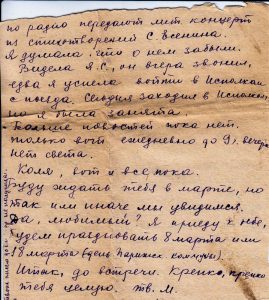 по радио передают лит концерт
из стихотворений С. Есенина.
Я думала, что о нем забыли.
Видела Я.С., он вчера звонил,
едва я успела войти в Исполком
с поезда. Сегодня заходил в Исполком,
но я была занята.
Больше новостей пока нет,
только вот ежедневно до 9 ч. вечера
нет света.
Коля, вот и все пока.
Буду ждать тебя в марте, но
так или иначе мы увидимся.
Да, любимый? Я приеду к тебе,
будем праздновать 8 марта или
18 марта (день Парижск. коммуны).
Итак, до встречи. Крепко, крепко
тебя целую. тв. М.